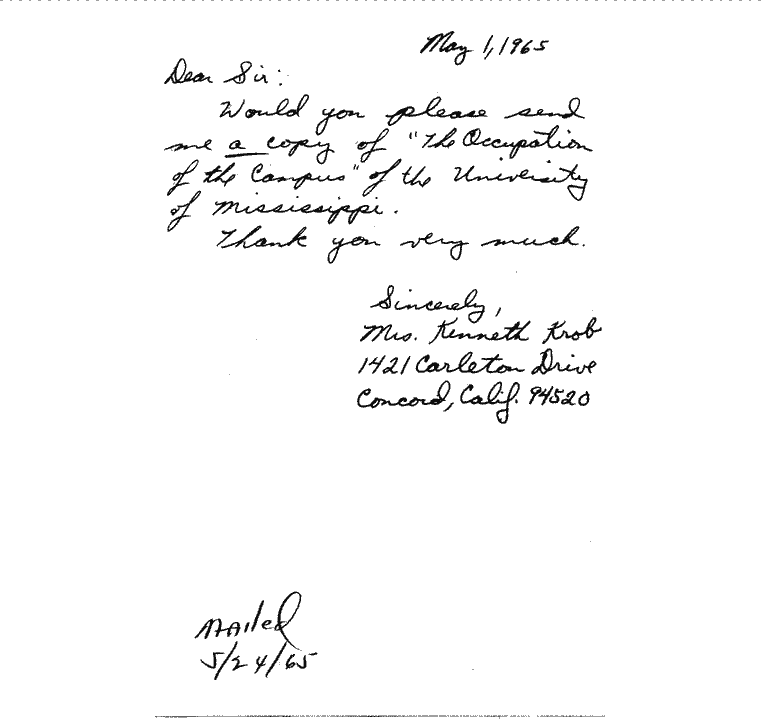 May 1, 1965
Dear Sir:
Would you please send
me a copy of "The Occupation
of the Campus" of the University
of Mississippi.
Thank you very much.
Sincerely,
Mrs. Kenneth Krob
1421 Carleton Drive
Concord, Calif. 94520
Mailed
5/24/65